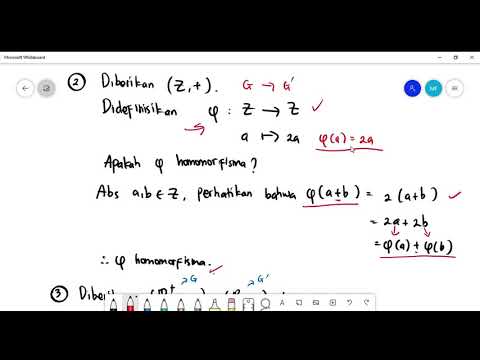 Microsoft Whiteboard
② Diberikan (Z,+). G → G'
Didefinisikan φ : Z → Z ✓
a ↦ 2a φ(a) = 2a
Apakah φ homomorfisma?
Abs a,b ∈ Z, perhatikan bahwa φ(a+b) = 2(a+b) ✓
= 2a + 2b
= φ(a) + φ(b)
∴ φ homomorfisma. ✓
→ G → G'
③